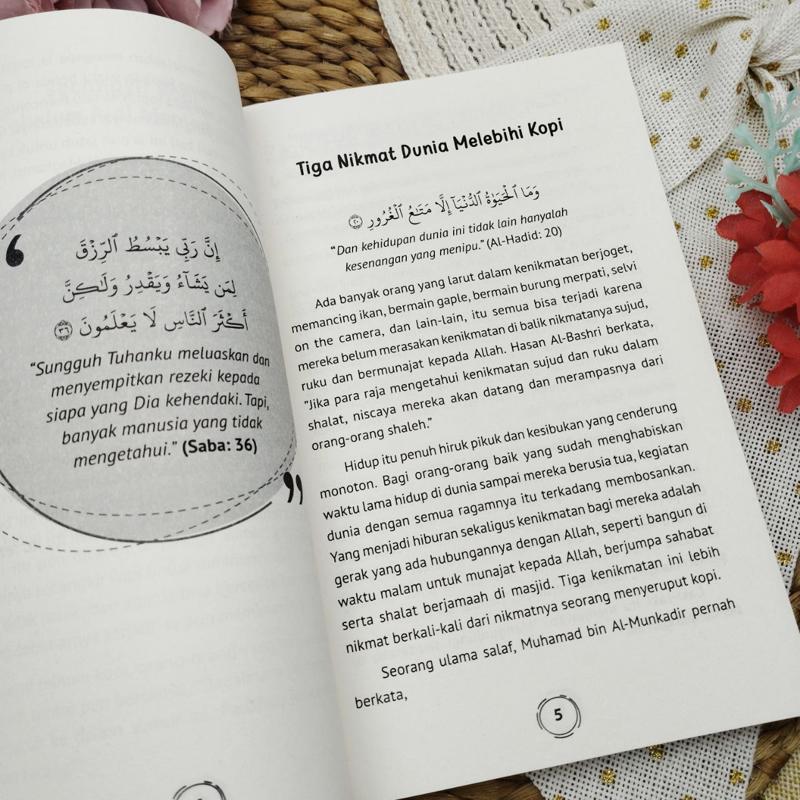 إِنَّ رَبِّي يَبْسُطُ ٱلرِّزْقَ
لِمَن يَشَآءُ وَيَقْدِرُ وَلَٰكِنَّ
أَكْثَرَ ٱلنَّاسِ لَا يَعْلَمُونَ ٣٦
“Sungguh Tuhanku meluaskan dan
menyempitkan rezeki kepada
siapa yang Dia kehendaki. Tapi,
banyak manusia yang tidak
mengetahui.” (Saba: 36)
Tiga Nikmat Dunia Melebihi Kopi
وَمَا ٱلْحَيَوٰةُ ٱلدُّنْيَآ إِلَّا مَتَٰعُ ٱلْغُرُورِ ٢٠
“Dan kehidupan dunia ini tidak lain hanyalah
kesenangan yang menipu.” (Al-Hadid: 20)
Ada banyak orang yang larut dalam kenikmatan berjoget,
memancing ikan, bermain gaple, bermain burung merpati, selvi
on the camera, dan lain-lain, itu semua bisa terjadi karena
mereka belum merasakan kenikmatan di balik nikmatnya sujud,
ruku dan bermunajat kepada Allah. Hasan Al-Bashri berkata,
“Jika para raja mengetahui kenikmatan sujud dan ruku dalam
shalat, niscaya mereka akan datang dan merampasnya dari
orang-orang shaleh.”
Hidup itu penuh hiruk pikuk dan kesibukan yang cenderung
monoton. Bagi orang-orang baik yang sudah menghabiskan
waktu lama hidup di dunia sampai mereka berusia tua, kegiatan
dunia dengan semua ragamnya itu terkadang membosankan.
Yang menjadi hiburan sekaligus kenikmatan bagi mereka adalah
gerak yang ada hubungannya dengan Allah, seperti bangun di
waktu malam untuk munajat kepada Allah, berjumpa sahabat
serta shalat berjamaah di masjid. Tiga kenikmatan ini lebih
nikmat berkali-kali dari nikmatnya seorang menyeruput kopi.
Seorang ulama salaf, Muhamad bin Al-Munkadir pernah
berkata,
5